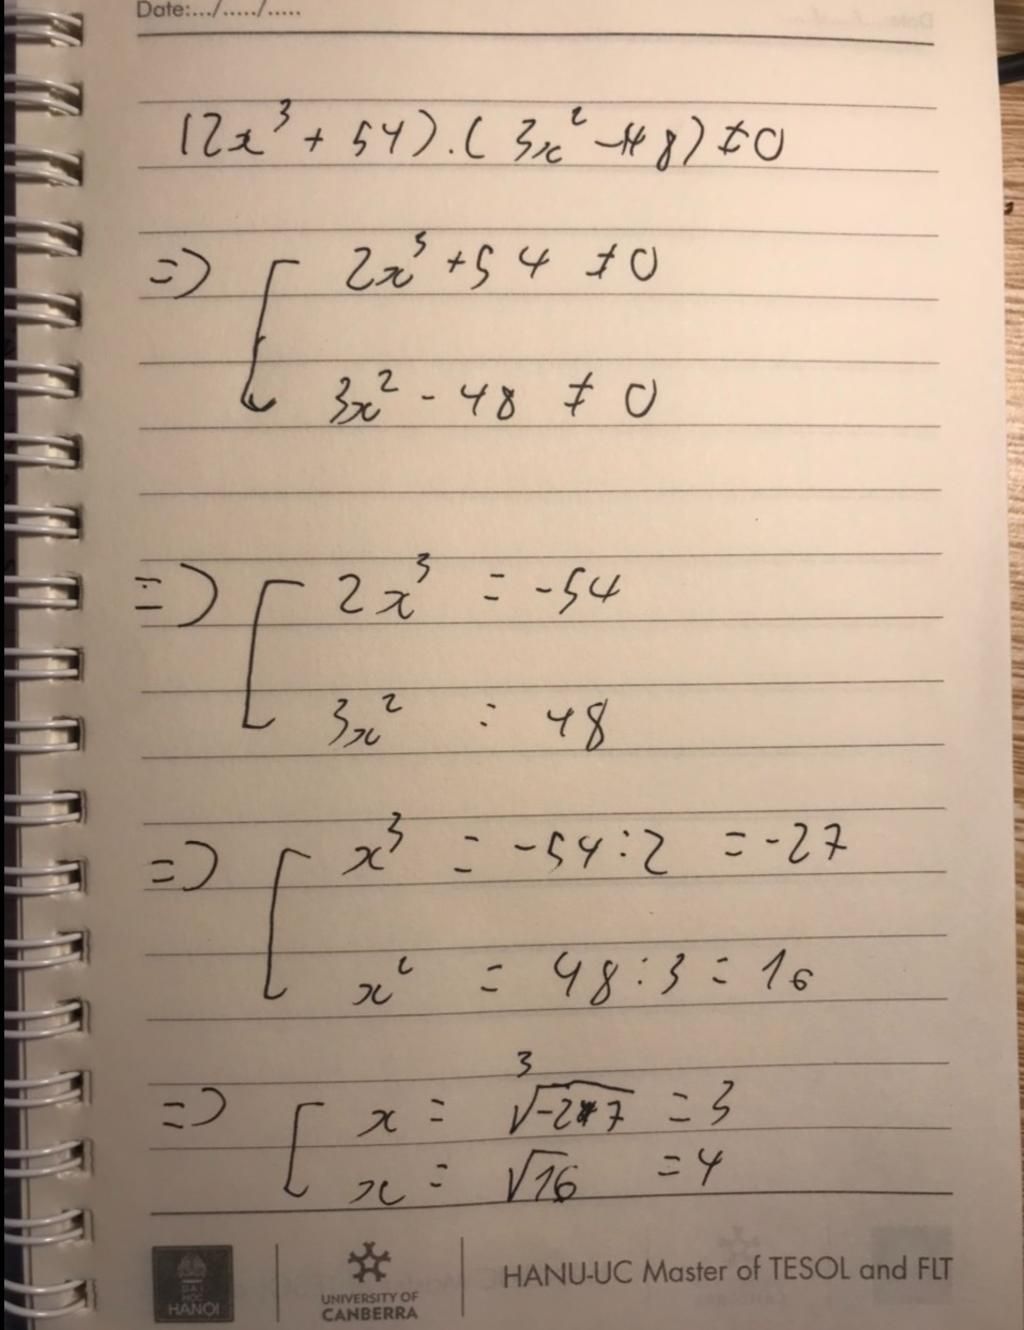 Date:.../...../.....
(2x³ + 54).(3x² - 48) ≠ 0
=> [ 2x³ + 54 ≠ 0
3x² - 48 ≠ 0
=> [ 2x³ = -54
3x² = 48
=> [ x³ = -54 : 2 = -27
x² = 48 : 3 = 16
=> [ x = ³√-27 = 3
x = √16 = 4
ĐẠI HỌC HANOI
UNIVERSITY OF CANBERRA
HANU-UC Master of TESOL and FLT